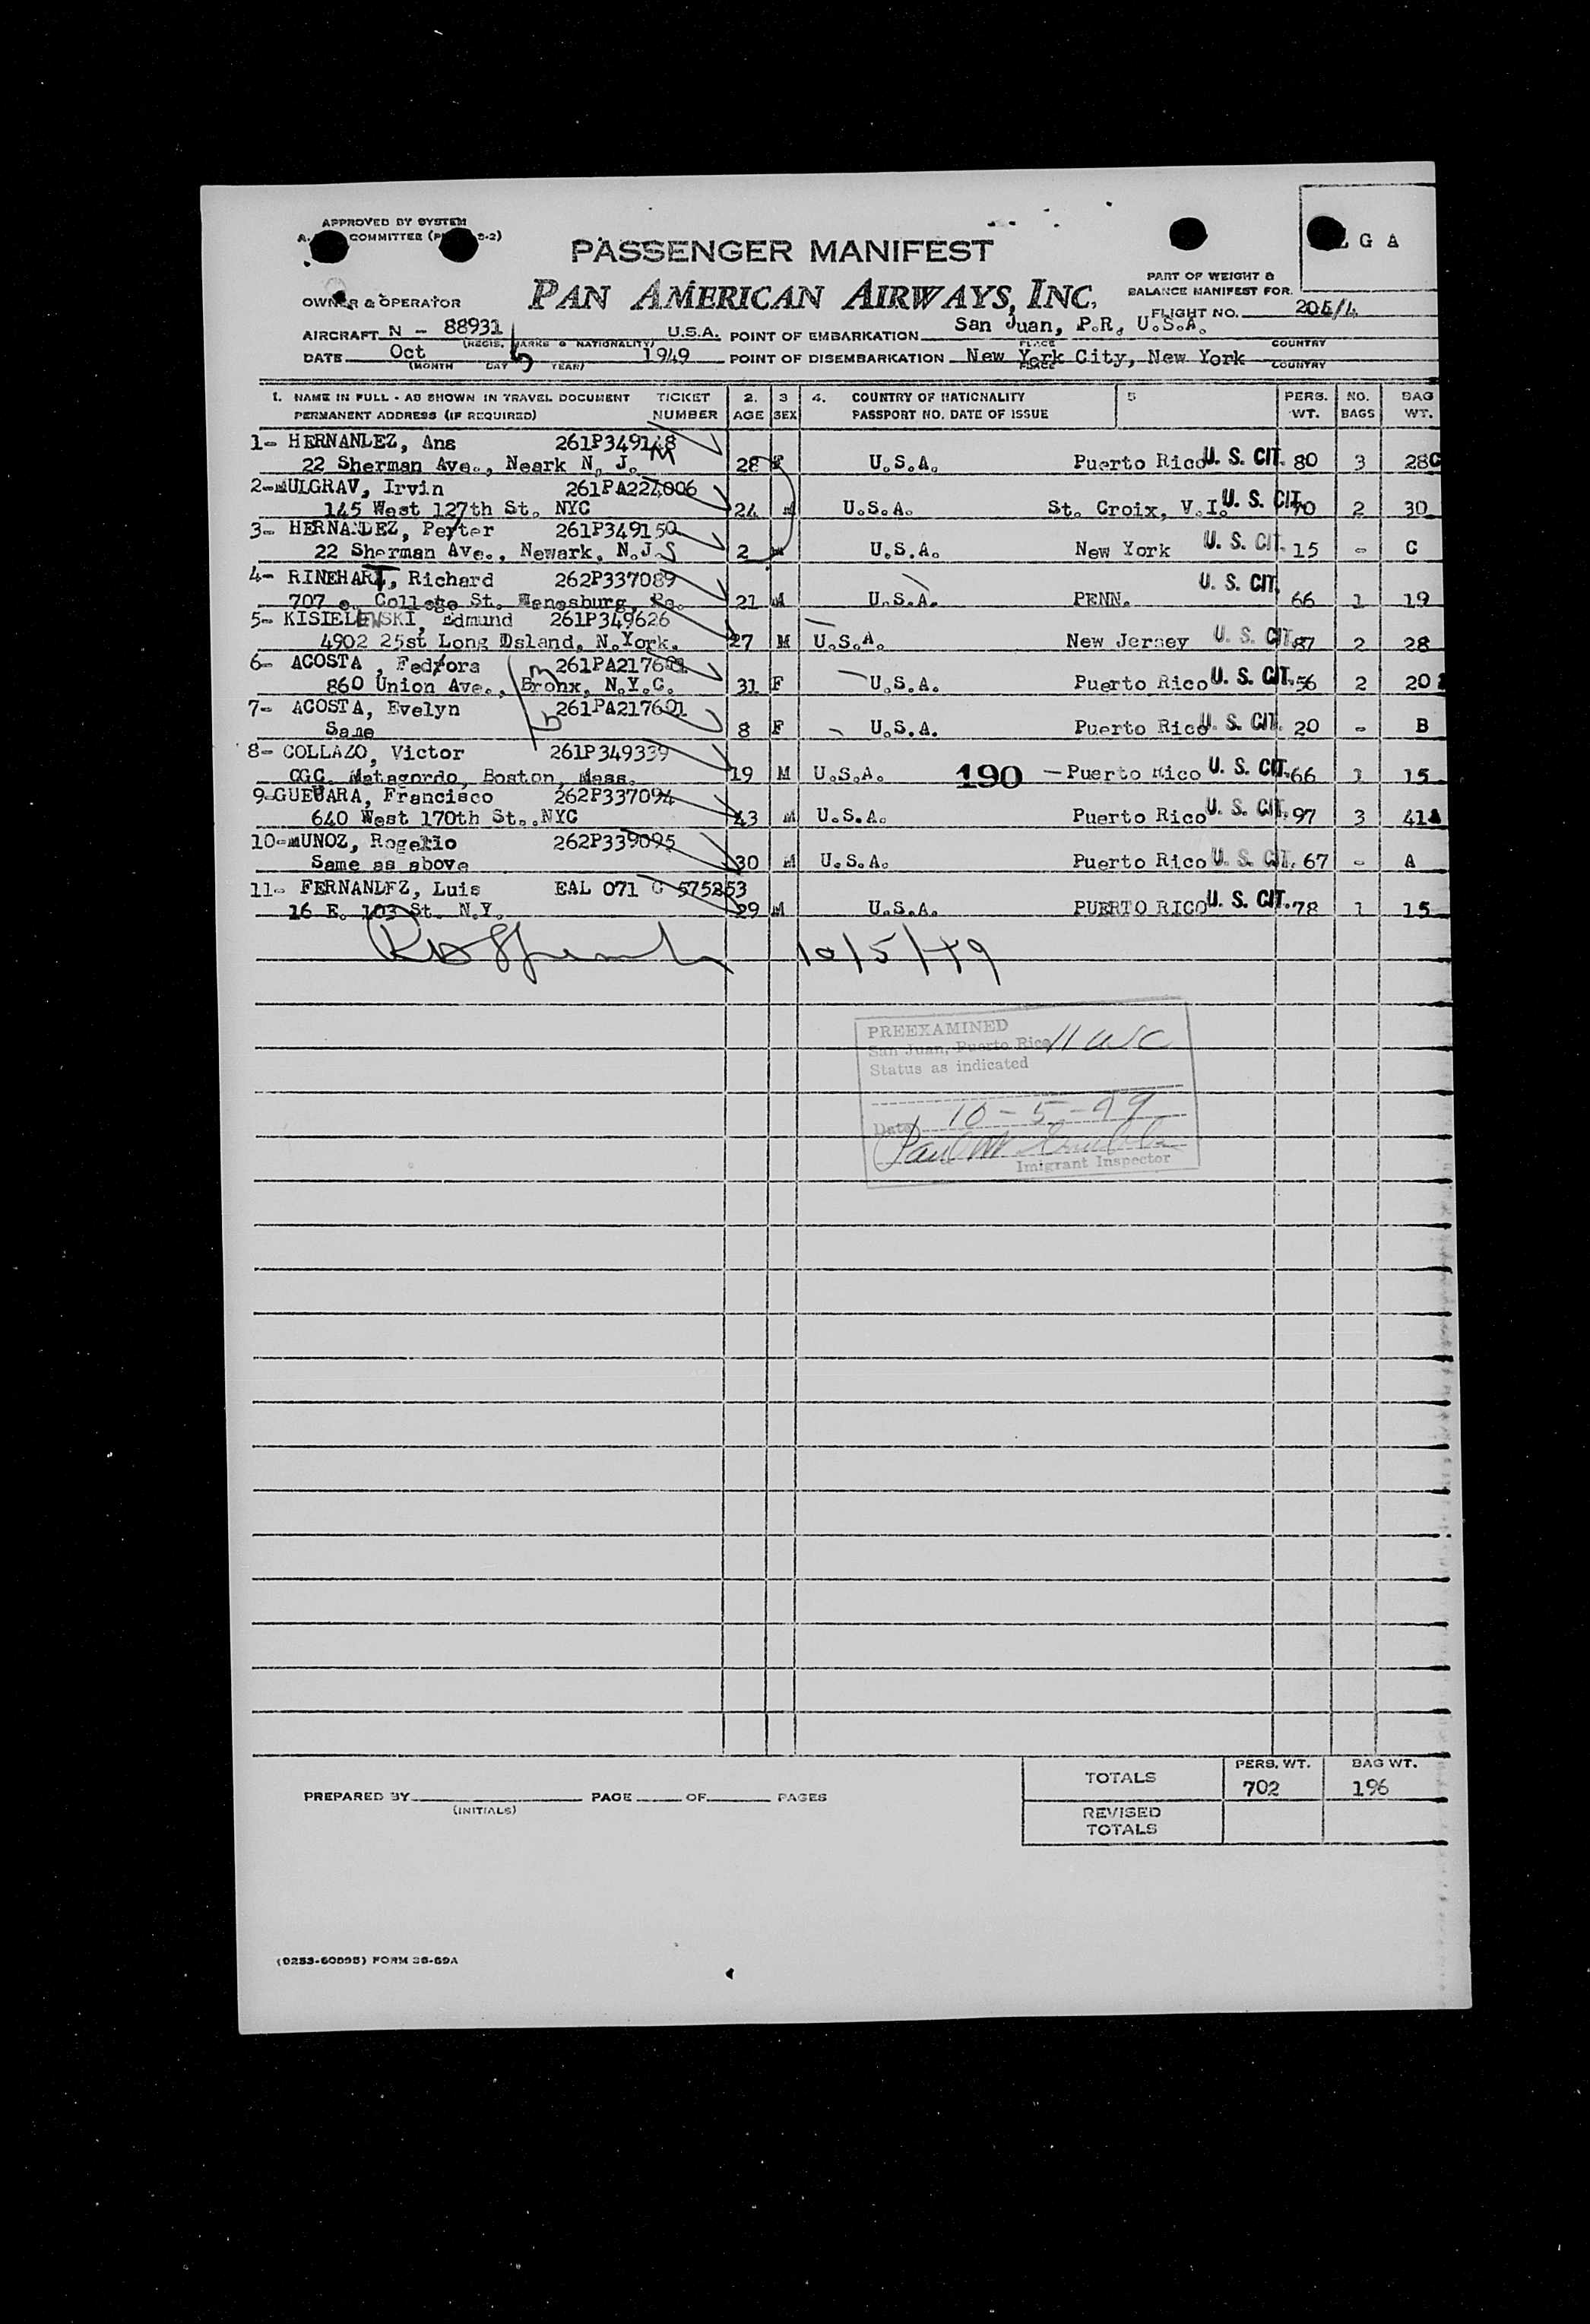 APPROVED BY SYSTEM
COMMITTEE
L G A
PASSENGER MANIFEST
PART OF WEIGHT &
BALANCE MANIFEST FOR
OWNER & OPERATOR
PAN AMERICAN AIRWAYS, INC.
FLIGHT NO.
AIRCRAFT N - 88931 U.S.A. POINT OF EMBARKATION San Juan, P.R, U.S.A.
(REGIS. MARKS & NATIONALITY) PLACE COUNTRY
DATE Oct 5 1949 POINT OF DISEMBARKATION New York City, New York
(MONTH DAY YEAR) PLACE COUNTRY
1. NAME IN FULL - AS SHOWN IN TRAVEL DOCUMENT TICKET 2. 3 4. COUNTRY OF NATIONALITY 5 PERS. NO. BAG
PERMANENT ADDRESS (IF REQUIRED) NUMBER AGE SEX PASSPORT NO. DATE OF ISSUE WT. BAGS WT.
1- HERNANLEZ, Ana 261P349148
22 Sherman Ave., Neark N. J. M 28 F U.S.A. Puerto Rico U. S. CIT. 80 3 28C
2-MULGRAV, Irvin 261PA224006
145 West 127th St. NYC 24 M U.S.A. St. Croix, V.I. U. S. CIT. 70 2 30
3- HERNANDEZ, Peyter 261P349150
22 Sherman Ave., Newark, N.J. 2 M U.S.A. New York U. S. CIT. 15 - C
4- RINEHART, Richard 262P337089
707 e. College St. Wenesburg, Pa. 21 M U.S.A. PENN. U. S. CIT. 66 1 19
5- KISIELEWSKI, Edmund 261P349626
4902 25st Long Dsland, N.York. 27 M U.S.A. New Jersey U. S. CIT. 87 2 28
6- ACOSTA , Fed/ora
860 Union Ave., Bronx, N.Y.C. 31 F U.S.A. Puerto Rico U. S. CIT. 56 2 20
7- ACOSTA, Evelyn 261PA217601
Same 8 F U.S.A. Puerto Rico U. S. CIT. 20 - B
8- COLLAZO, Victor 261P349339
CGC. Matagordo, Boston, Mass. 19 M U.S.A. 190 Puerto Rico U. S. CIT. 66 1 15
9-GUEVARA, Francisco 262P337094
640 West 170th St..NYC 43 M U.S.A. Puerto Rico U. S. CIT. 97 3 41A
10-MUNOZ, Rogelio 262P339095
Same as above 30 M U.S.A. Puerto Rico U. S. CIT. 67 - A
11- FERNANLFZ, Luis EAL 071 575253
16 E. 103 St. N.Y. 29 M U.S.A. PUERTO RICO U. S. CIT. 78 1 15
10/5/49
PREEXAMINED
San Juan, Puerto Rico 11 USC
Status as indicated
Date 10-5-49
Imigrant Inspector
PERS. WT. BAG WT.
TOTALS 702 196
PREPARED BY PAGE OF PAGES
(INITIALS)
REVISED
TOTALS
(0253-60095) FORM 36-69A